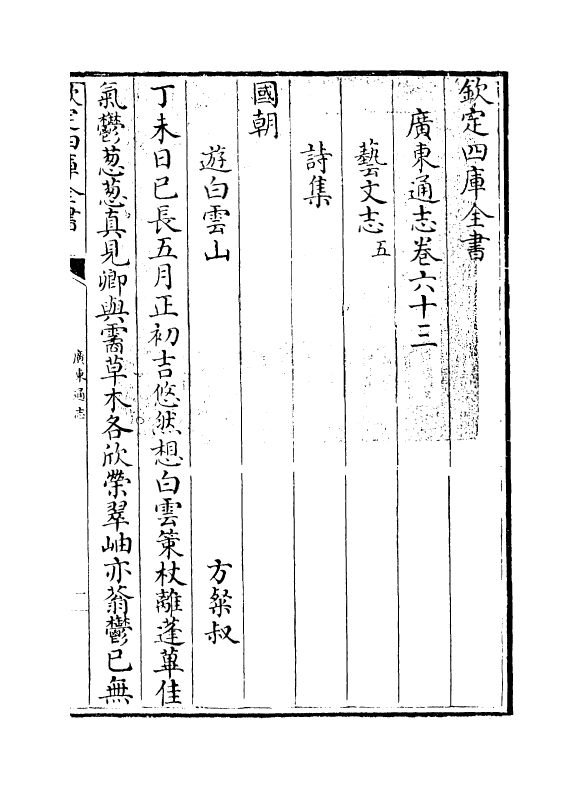 欽定四庫全書
廣東通志卷六十三
藝文志五
詩集
國朝
遊白雲山 方粲叔
丁未日已長五月正初吉悠然想白雲策杖離蓬蓽佳
氣鬱葱葱真見卿與霱草木各欣榮翠岫亦蓊鬱已無
欽定四庫全書
廣東通志
一